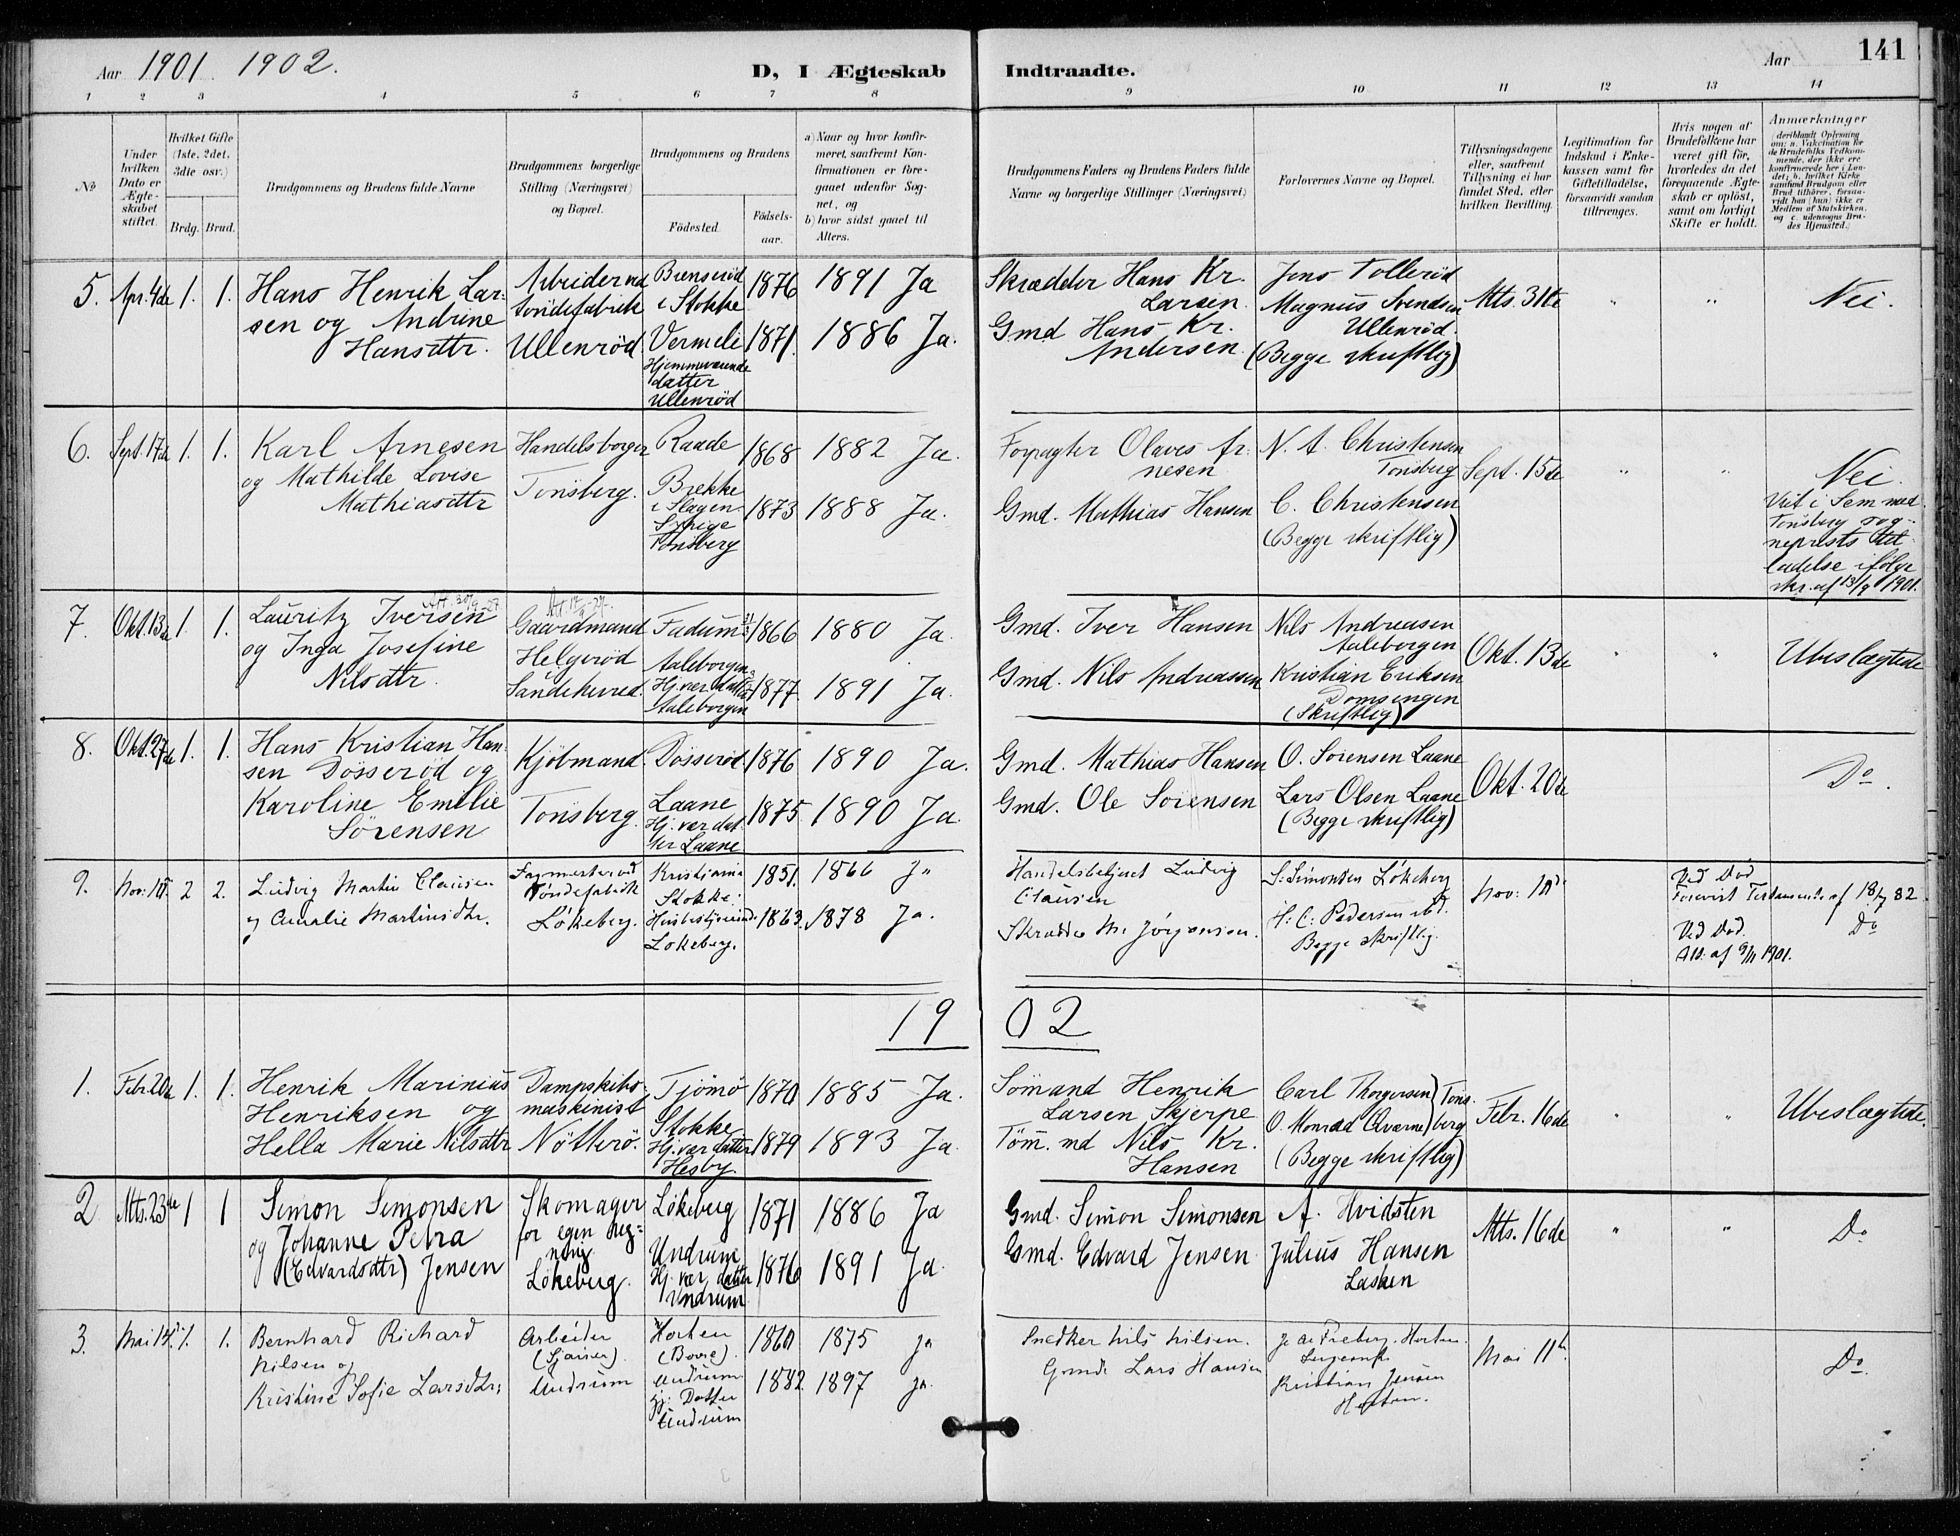 Aar 1901 1902.
D, I Ægteskab Indtraadte.
Aar
141
1 2 3 4 5 6 7 8 9 10 11 12 13 14
No
Under hvilken Dato er Ægteskabet stiftet.
Hvilket Gifte (1ste, 2det, 3die osv.)
Brdg. Brud.
Brudgommens og Brudens fulde Navne
Brudgommens borgerlige Stilling (Næringsvei) og Bopæl.
Brudgommens og Brudens
Födested.
Födsels-aar.
a) Naar og hvor konfir-
meret, saafremt Kon-
firmationen er fore-
gaaet udenfor Sog-
net, og
b) hvor sidst gaaet til
Alters.
Brudgommens Faders og Brudens Faders fulde
Navne og borgerlige Stillinger (Næringsvei)
Forlovernes Navne og Bopæl.
Tillysningsdagene
eller, saafremt
Tillysning ei har
fundet Sted, efter
hvilken Bevilling.
Legitimation for
Indskud i Enke-
kassen samt for
Giftetilladelse,
forsaavidt saadan
tiltrænges.
Hvis nogen af
Brudefolkene har
været gift før,
hvorledes da det
foregaaende Ægte-
skab er oplöst,
samt om lovligt
Skifte er holdt.
Anmærkninger
5. Apr. 4de 1. 1. Hans Henrik Lar-
sen og Andrine
Hansdtr.
Arbeider ved
Tøndefabrik
Ullenrød
Brenserød
i Stokke 1876 1891 Ja
Vermeli 1871. 1886 Ja.
Hjemmeværende
datter
Ullenrød
Skrædder Hans Kr.
Larsen.
Gmd Hans Kr.
Andersen.
Jens Tollerød
Magnus Svendsen
Ullenrød.
(Begge skriftlig)
Mts. 31te " " Nei.
6. Sept. 17de 1. 1. Karl Arnesen
og Mathilde Lovise
Mathiasdtr
Handelsborger
Tønsberg.
Raade 1868 1882 Ja.
Brekke
i Slagen 1873 1888 Ja.
Tønsberg
Forpagter Olaves Ar-
nesen
Gmd. Mathias Hansen
N. A. Christensen
Tønsberg
C. Christensen
(Begge skriftlig)
Sept. 15de " " Nei.
Viet i Sem med
Tønsberg sog-
neprests til-
ladelse ifølge
skr. af 13/9 1901.
7. Okt. 13de 1. 1. Lauritz Iversen
og Inga Josefine
Nilsdtr.
Gaardmand
Helgerød
Sandeherred.
Fadum 1866 1880 Ja.
Aaleborgen
Hj. vær datter 1877. 1891 Ja.
Aaleborgen
Gmd. Iver Hansen
Gmd. Nils Andreassen
Nils Andreasen
Aaleborgen
Kristian Eriksen
Domsengen
(Skriftlig)
Okt. 13de " " Ubeslægtede
8. Okt. 27de 1. 1. Hans Kristian Han-
sen Døsserød og
Karoline Emilie
Sørensen
Kjøbmand.
Tønsberg.
Døsserød. 1876 1890 Ja.
Laane 1875 1890 Ja.
Hj. vær dat-
ter Laane
Gmd. Mathias Hansen
Gmd. Ole Sørensen
O. Sørensen Laane
Lars Olsen Laane
(Begge skriftlig)
Okt. 20de Do.
9. Nov: 10d. 2 2. Ludvig Martin Clausen
og Amalie Martinsdtr.
Formester ved
Tøndefabrik
Løkeberg.
Kristiania 1851. 1866 Ja
Stokke: 1863. 1878 Ja.
Husbestyrerinde
Løkeberg.
Handelsbetjent Ludvig
Clausen
Skrædder M. Jørgensen.
S. Simonsen Løkeberg
H: C: Pedersen ibd.
Begge skriftlig.
Nov: 10d
Ved Død
Forevist Testamente af 18/7 82
Ved Død. Do
Att. af 9/11 1901.
19 02
1. Febr. 20de 1. 1. Henrik Marinius
Henriksen og
Hella Marie Nilsdtr
Dampskibs-
maskinist
Nøtterø.
Tjømø 1870 1885 Ja.
Stokke 1879 1893 Ja.
Hj. vær datter
Hesby.
Sømand Henrik
Larsen Skjerpe
Tøm. md Nils Kr.
Hansen
Carl Thorgersen) Tøns-
O. Monrad Qvarne) berg
(Begge skriftlig)
Febr. 16de " " Ubeslægtede.
2 Mts. 23de 1 1 Simon Simonsen
og Johanne Petra
(Edvardsdtr) Jensen
Skomager
for egen Reg-
ning
Løkeberg.
Løkeberg 1871 1886 Ja
Undrum 1876 1891 Ja.
Hj. vær. datter
Undrum
Gmd. Simon Simonsen
Gmd. Edvard Jensen
A. Hvidsten
Julius Hansen
Lasken
Mts. 16de " " Do
3. Mai 1. 1. Bernhard Richard
Nilsen og
Kristine Sofie Larsdtr;
Arbeider
(Sjauer).
Undrum
Horten 1860 1875 Ja
(Borre).
Undrum 1882 1897 Ja.
Hj: Datter
Undrum
Snedker Nils Nilsen.
Gmd: Lars Hansen
Freberg. Horten
Kristian Jensen
Horten.
Mai 11te Do.